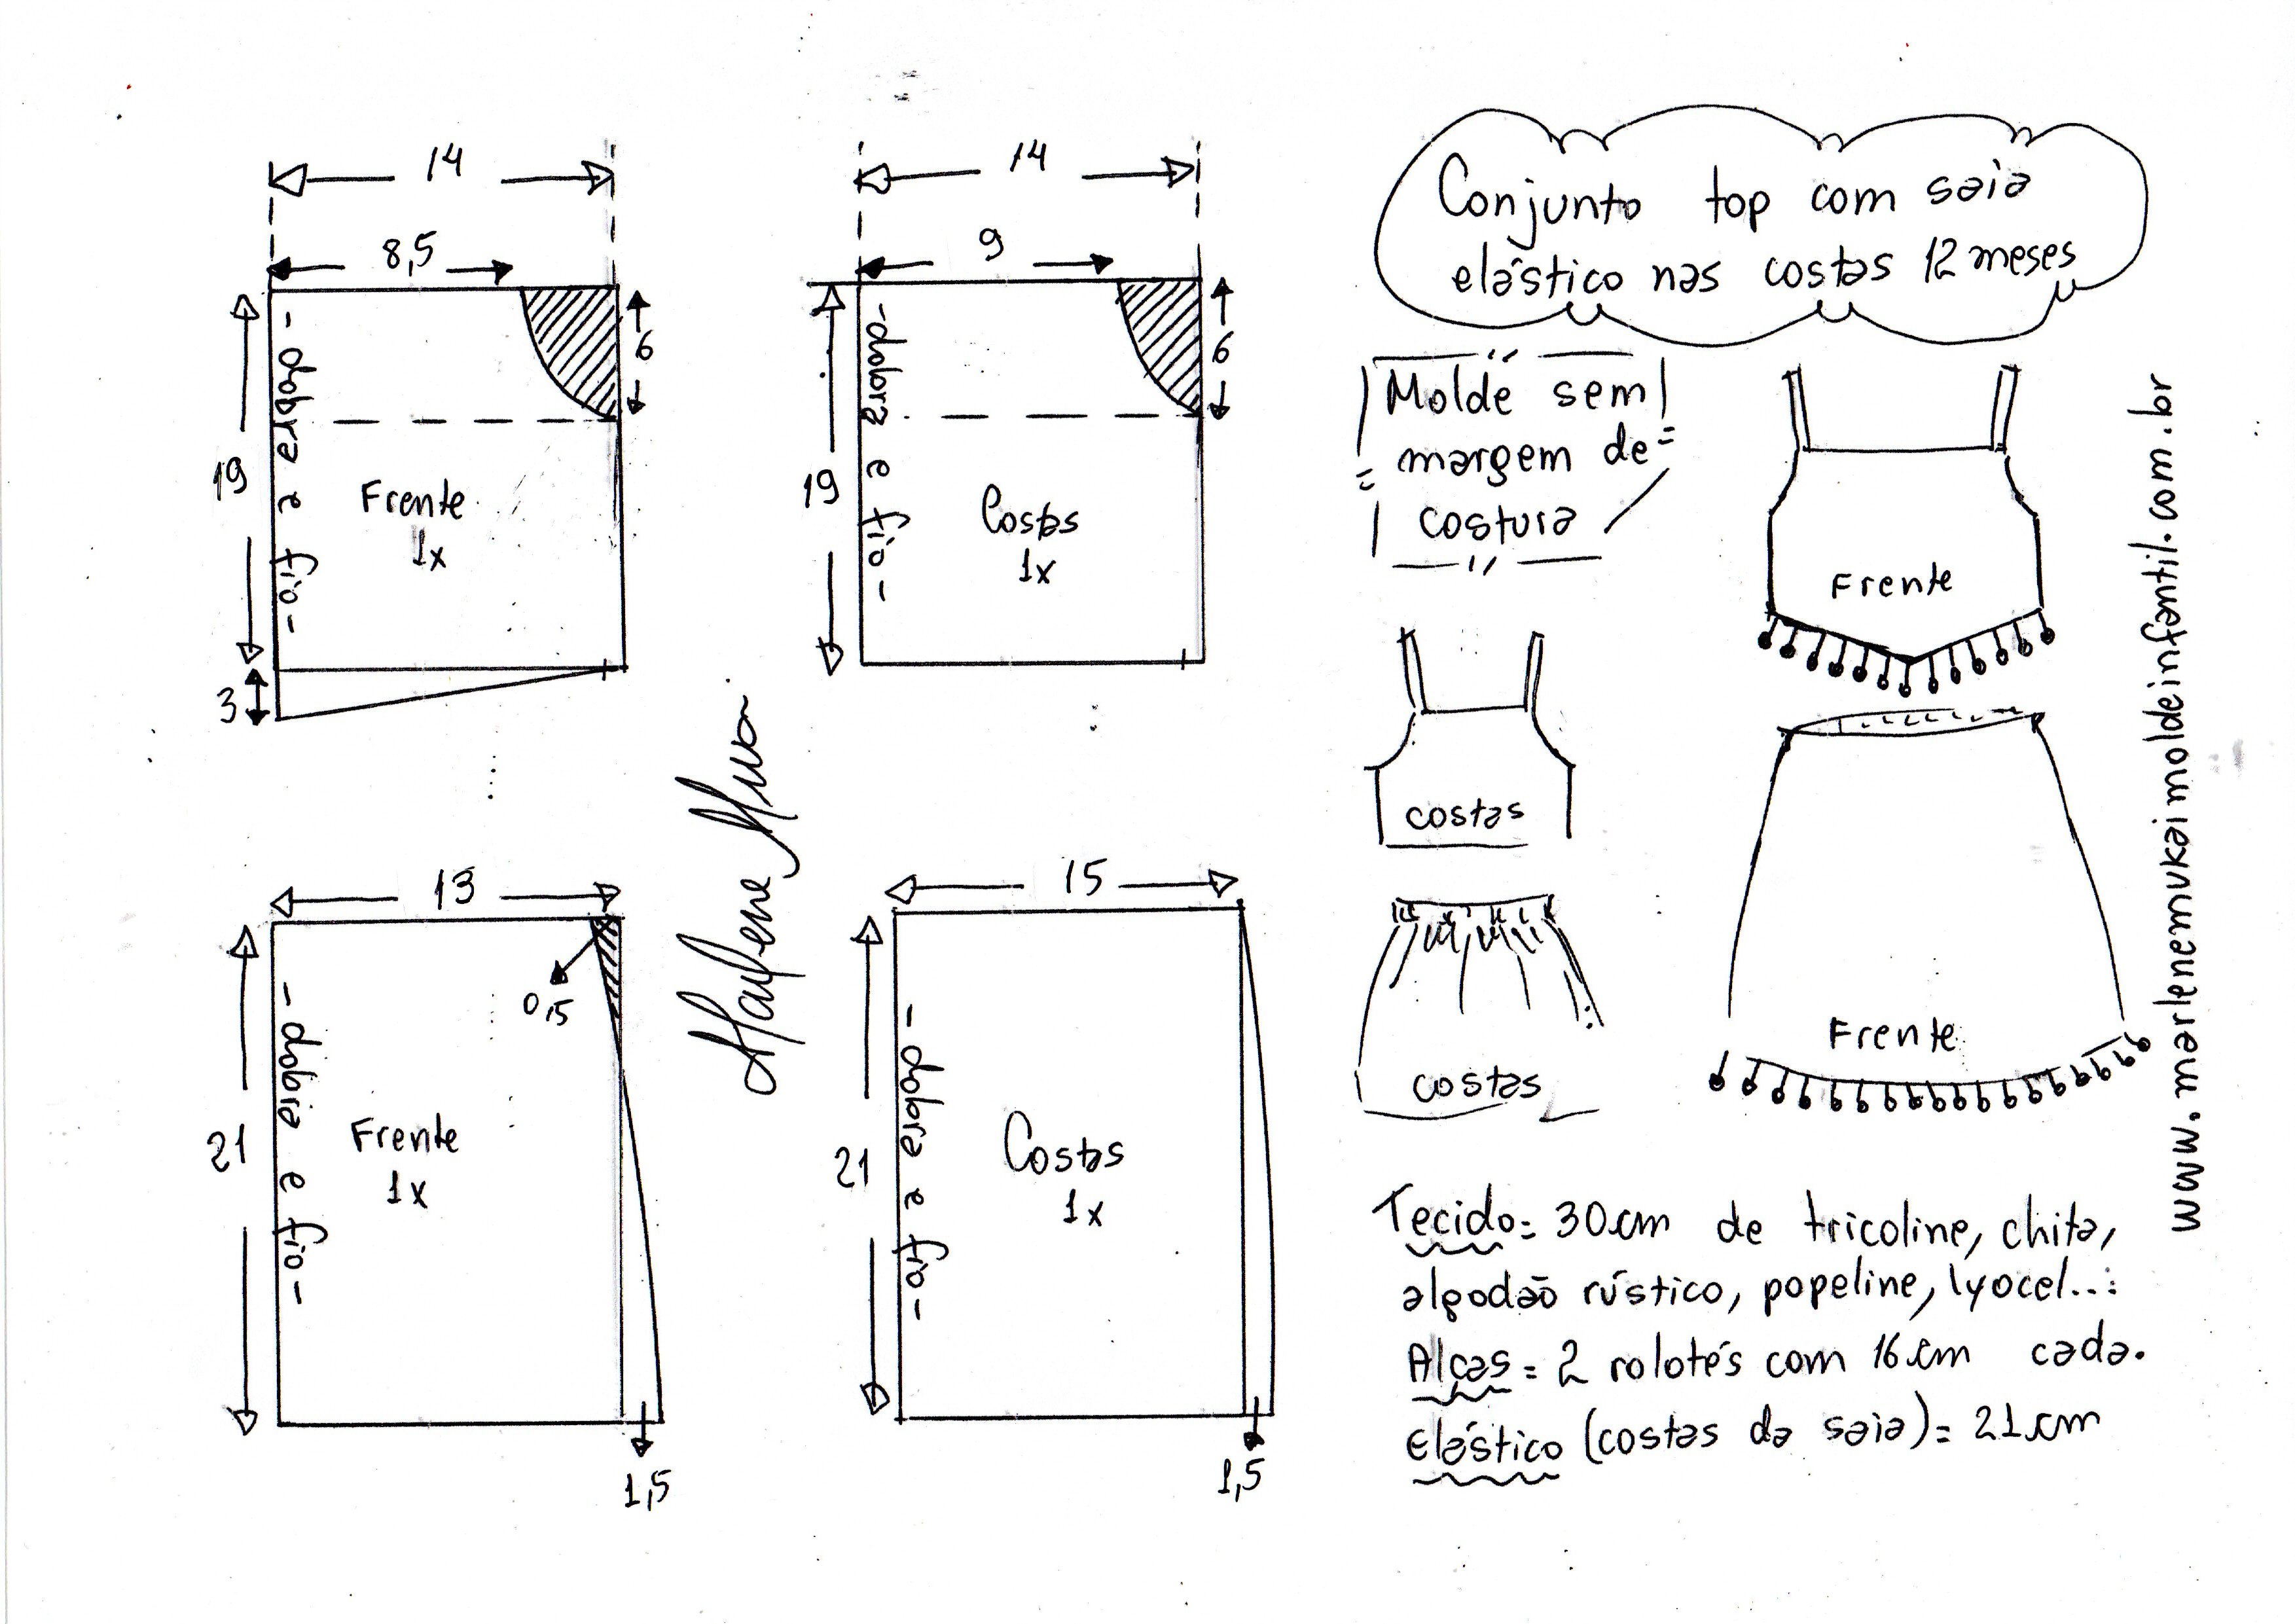 14
8,5
6
19
- dobra e fio -
Frente
1x
3
14
9
6
19
- dobra e fio -
Costas
1x
Conjunto top com saia
elástico nas costas 12 meses
Molde sem
margem de
costura
Frente
costas
Frente
costas
www.marlenemukaimoldeinfantil.com.br
Marlene Mukai
13
0,5
21
- dobra e fio -
Frente
1x
1,5
15
21
- dobra e fio -
Costas
1x
1,5
Tecido= 30cm de tricoline, chita,
algodão rústico, popeline, lyocel...
Alças = 2 rolotês com 16cm cada.
Elástico (costas da saia)= 21cm